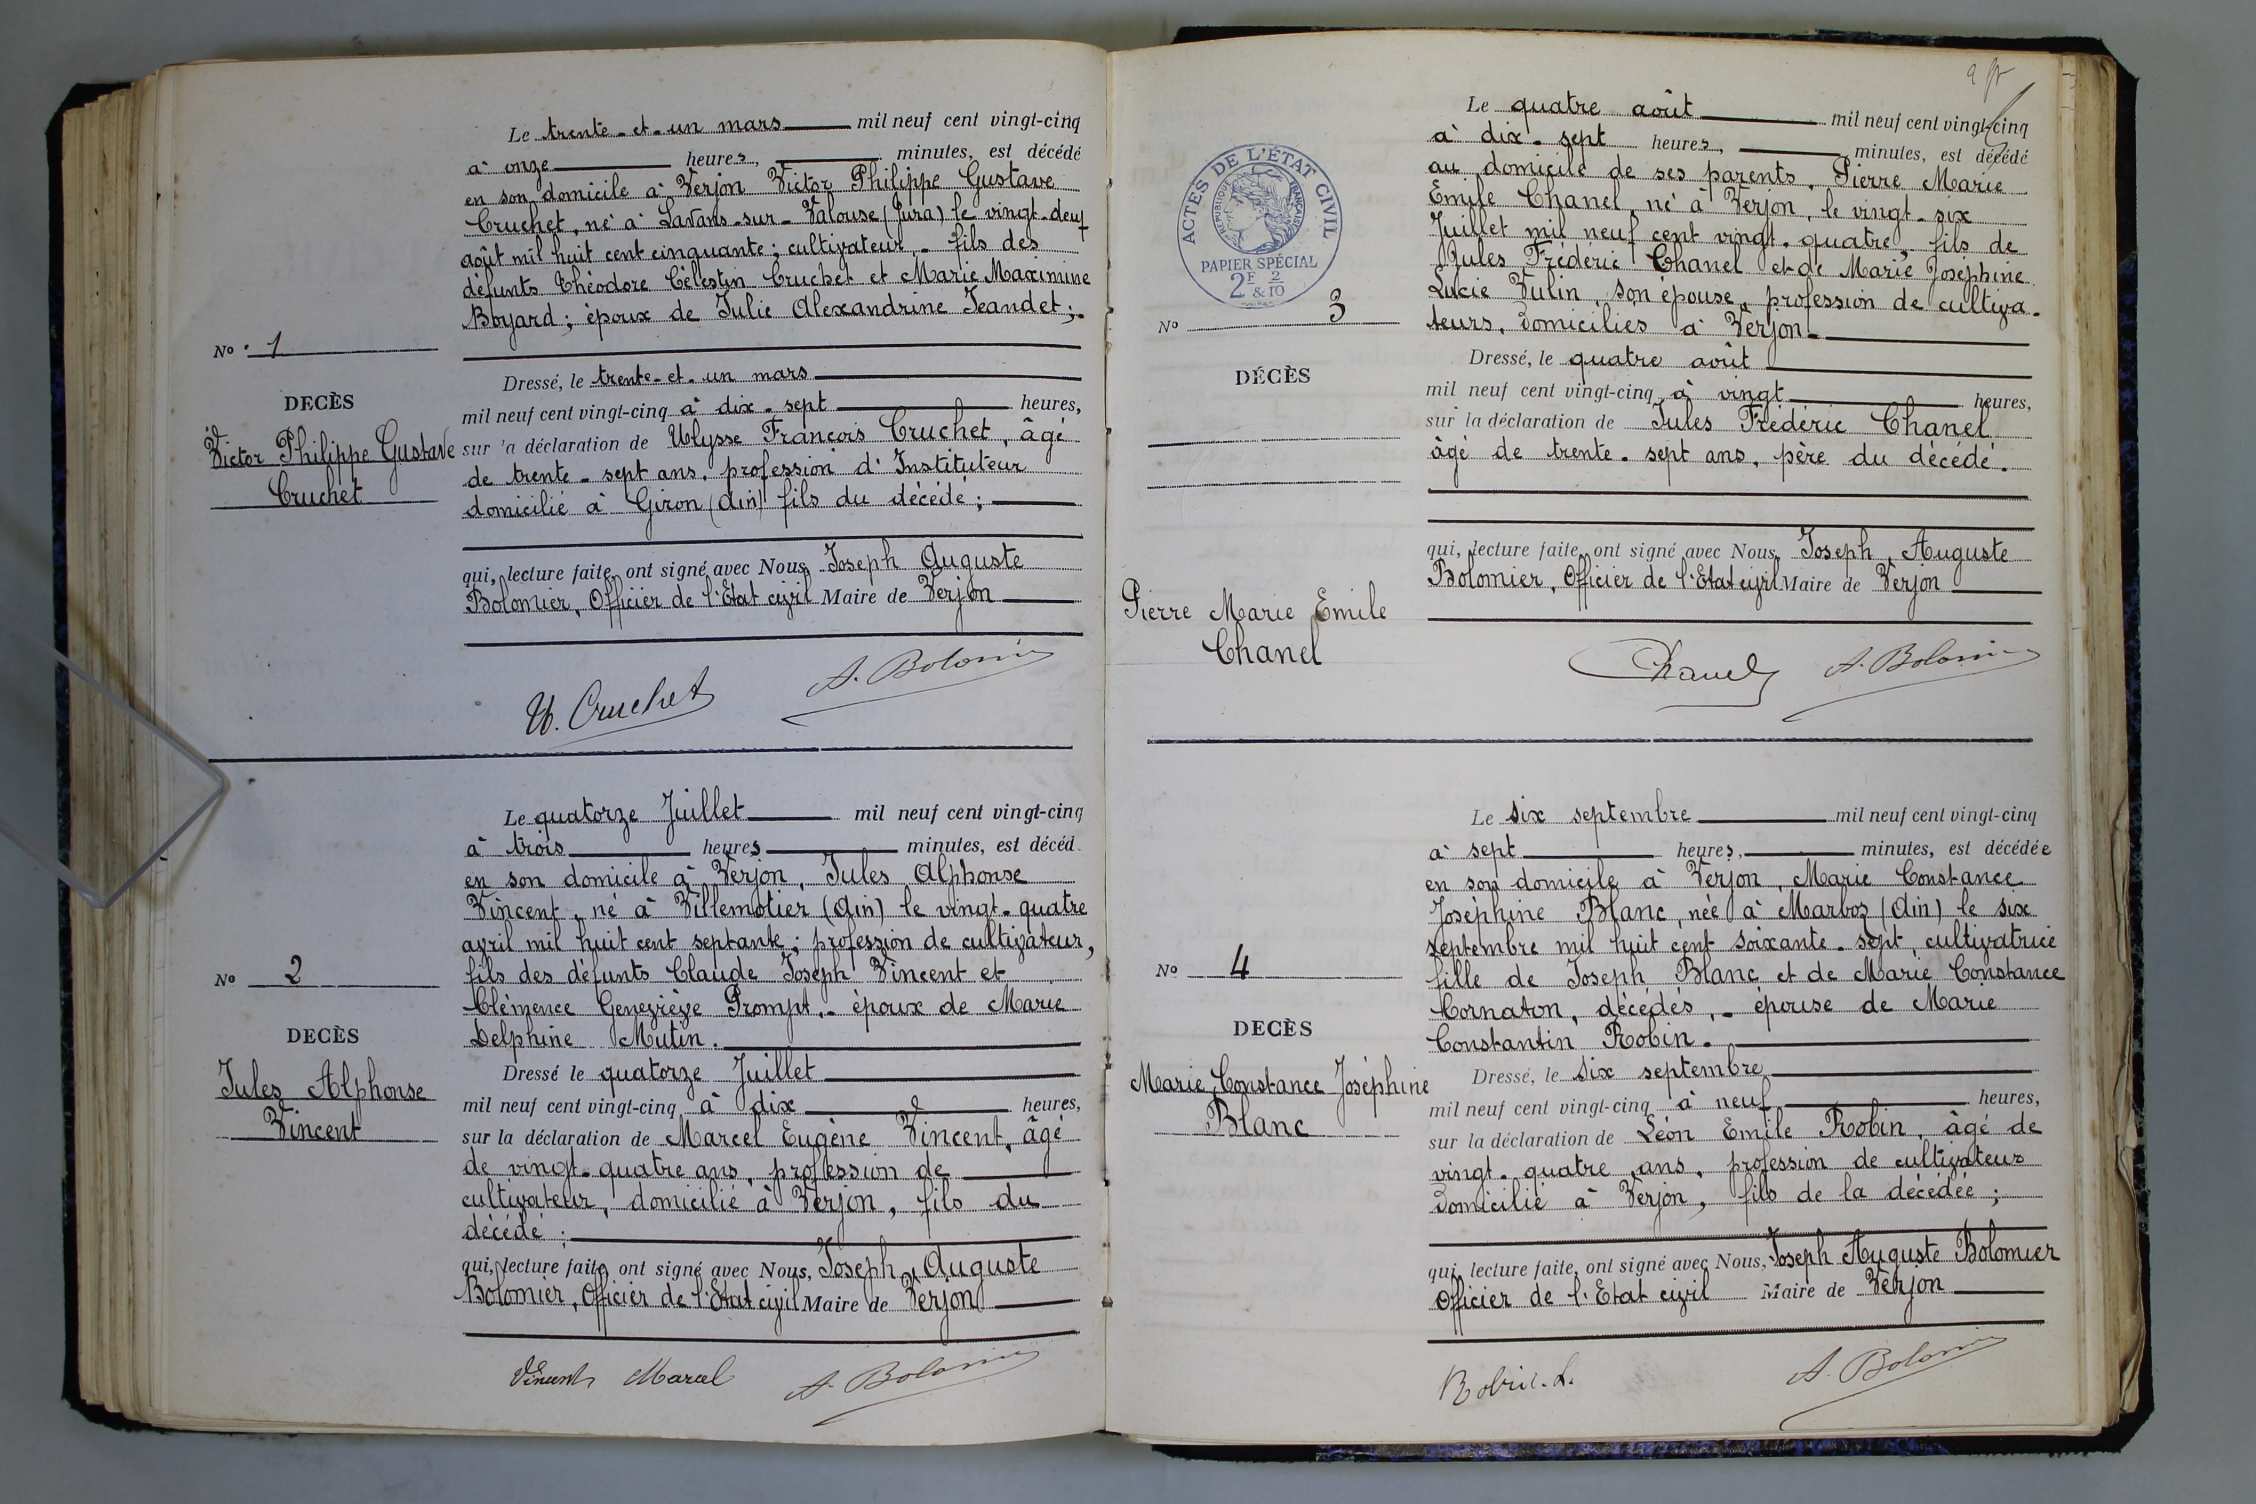 Le trente-et-un mars mil neuf cent vingt-cinq
à onze heures, minutes, est décédé
en son domicile à Verjon Victor Philippe Gustave
Cruchet, né à Lavans-sur-Valouse (Jura) le vingt-deux
août mil huit cent cinquante; cultivateur,- fils des
défunts Théodore Célestin Cruchet et Marie Maximine
Boyard; époux de Julie Alexandrine Jeandet;-
No 1
DECÈS
Victor Philippe Gustave
Cruchet
Dressé, le trente-et-un mars
mil neuf cent vingt-cinq à dix-sept heures,
sur la déclaration de Ulysse François Cruchet, âgé
de trente-sept ans, profession d'Instituteur
domicilié à Giron (Ain) fils du décédé;
qui, lecture faite, ont signé avec Nous, Joseph Auguste
Bolomier, Officier de l'Etat civil Maire de Verjon
U. Cruchet A. Bolomier
Le quatorze Juillet mil neuf cent vingt-cinq
à trois heures minutes, est décéd
en son domicile à Verjon, Jules Alphonse
Vincent, né à Villemotier (Ain) le vingt-quatre
avril mil huit cent septante; profession de cultivateur,
fils des défunts Claude Joseph Vincent et
Clémence Geneviève Prompt,- époux de Marie
Delphine Mutin.
No 2
DECÈS
Jules Alphonse
Vincent
Dressé le quatorze Juillet
mil neuf cent vingt-cinq à dix heures,
sur la déclaration de Marcel Eugène Vincent, âgé
de vingt-quatre ans, profession de
cultivateur, domicilié à Verjon, fils du
décédé;
qui, lecture faite, ont signé avec Nous, Joseph Auguste
Bolomier, Officier de l'Etat civil Maire de Verjon
Vincent Marcel A. Bolomier
ACTES DE L'ÉTAT CIVIL
REPUBLIQUE FRANÇAISE
PAPIER SPÉCIAL
2F & 2/10
Le quatre août mil neuf cent vingt-cinq
à dix-sept heures, minutes, est décédé
au domicile de ses parents, Pierre Marie
Emile Chanel, né à Verjon, le vingt-six
Juillet mil neuf cent vingt-quatre, fils de
Jules Frédéric Chanel et de Marie Joséphine
Lucie Vulin, son épouse, profession de cultiva-
teurs, domiciliés à Verjon-
No 3
DÉCÈS
Pierre Marie Emile
Chanel
Dressé, le quatre août
mil neuf cent vingt-cinq à vingt heures,
sur la déclaration de Jules Frédéric Chanel
âgé de trente-sept ans, père du décédé.
qui, lecture faite, ont signé avec Nous, Joseph, Auguste
Bolomier, Officier de l'Etat civil Maire de Verjon
Chanel A. Bolomier
Le six septembre mil neuf cent vingt-cinq
à sept heures, minutes, est décédée
en son domicile à Verjon, Marie Constance
Joséphine Blanc, née à Marboz (Ain) le six
septembre mil huit cent soixante-sept, cultivatrice
fille de Joseph Blanc et de Marie Constance
Cornaton, décédés,- épouse de Marie
Constantin Robin.
No 4
DECÈS
Marie Constance Joséphine
Blanc
Dressé, le six septembre
mil neuf cent vingt-cinq à neuf heures,
sur la déclaration de Léon Emile Robin, âgé de
vingt-quatre ans, profession de cultivateur
domicilié à Verjon, fils de la décédée;
qui, lecture faite, ont signé avec Nous, Joseph Auguste Bolomier
Officier de l'Etat civil Maire de Verjon
Robin. L. A. Bolomier